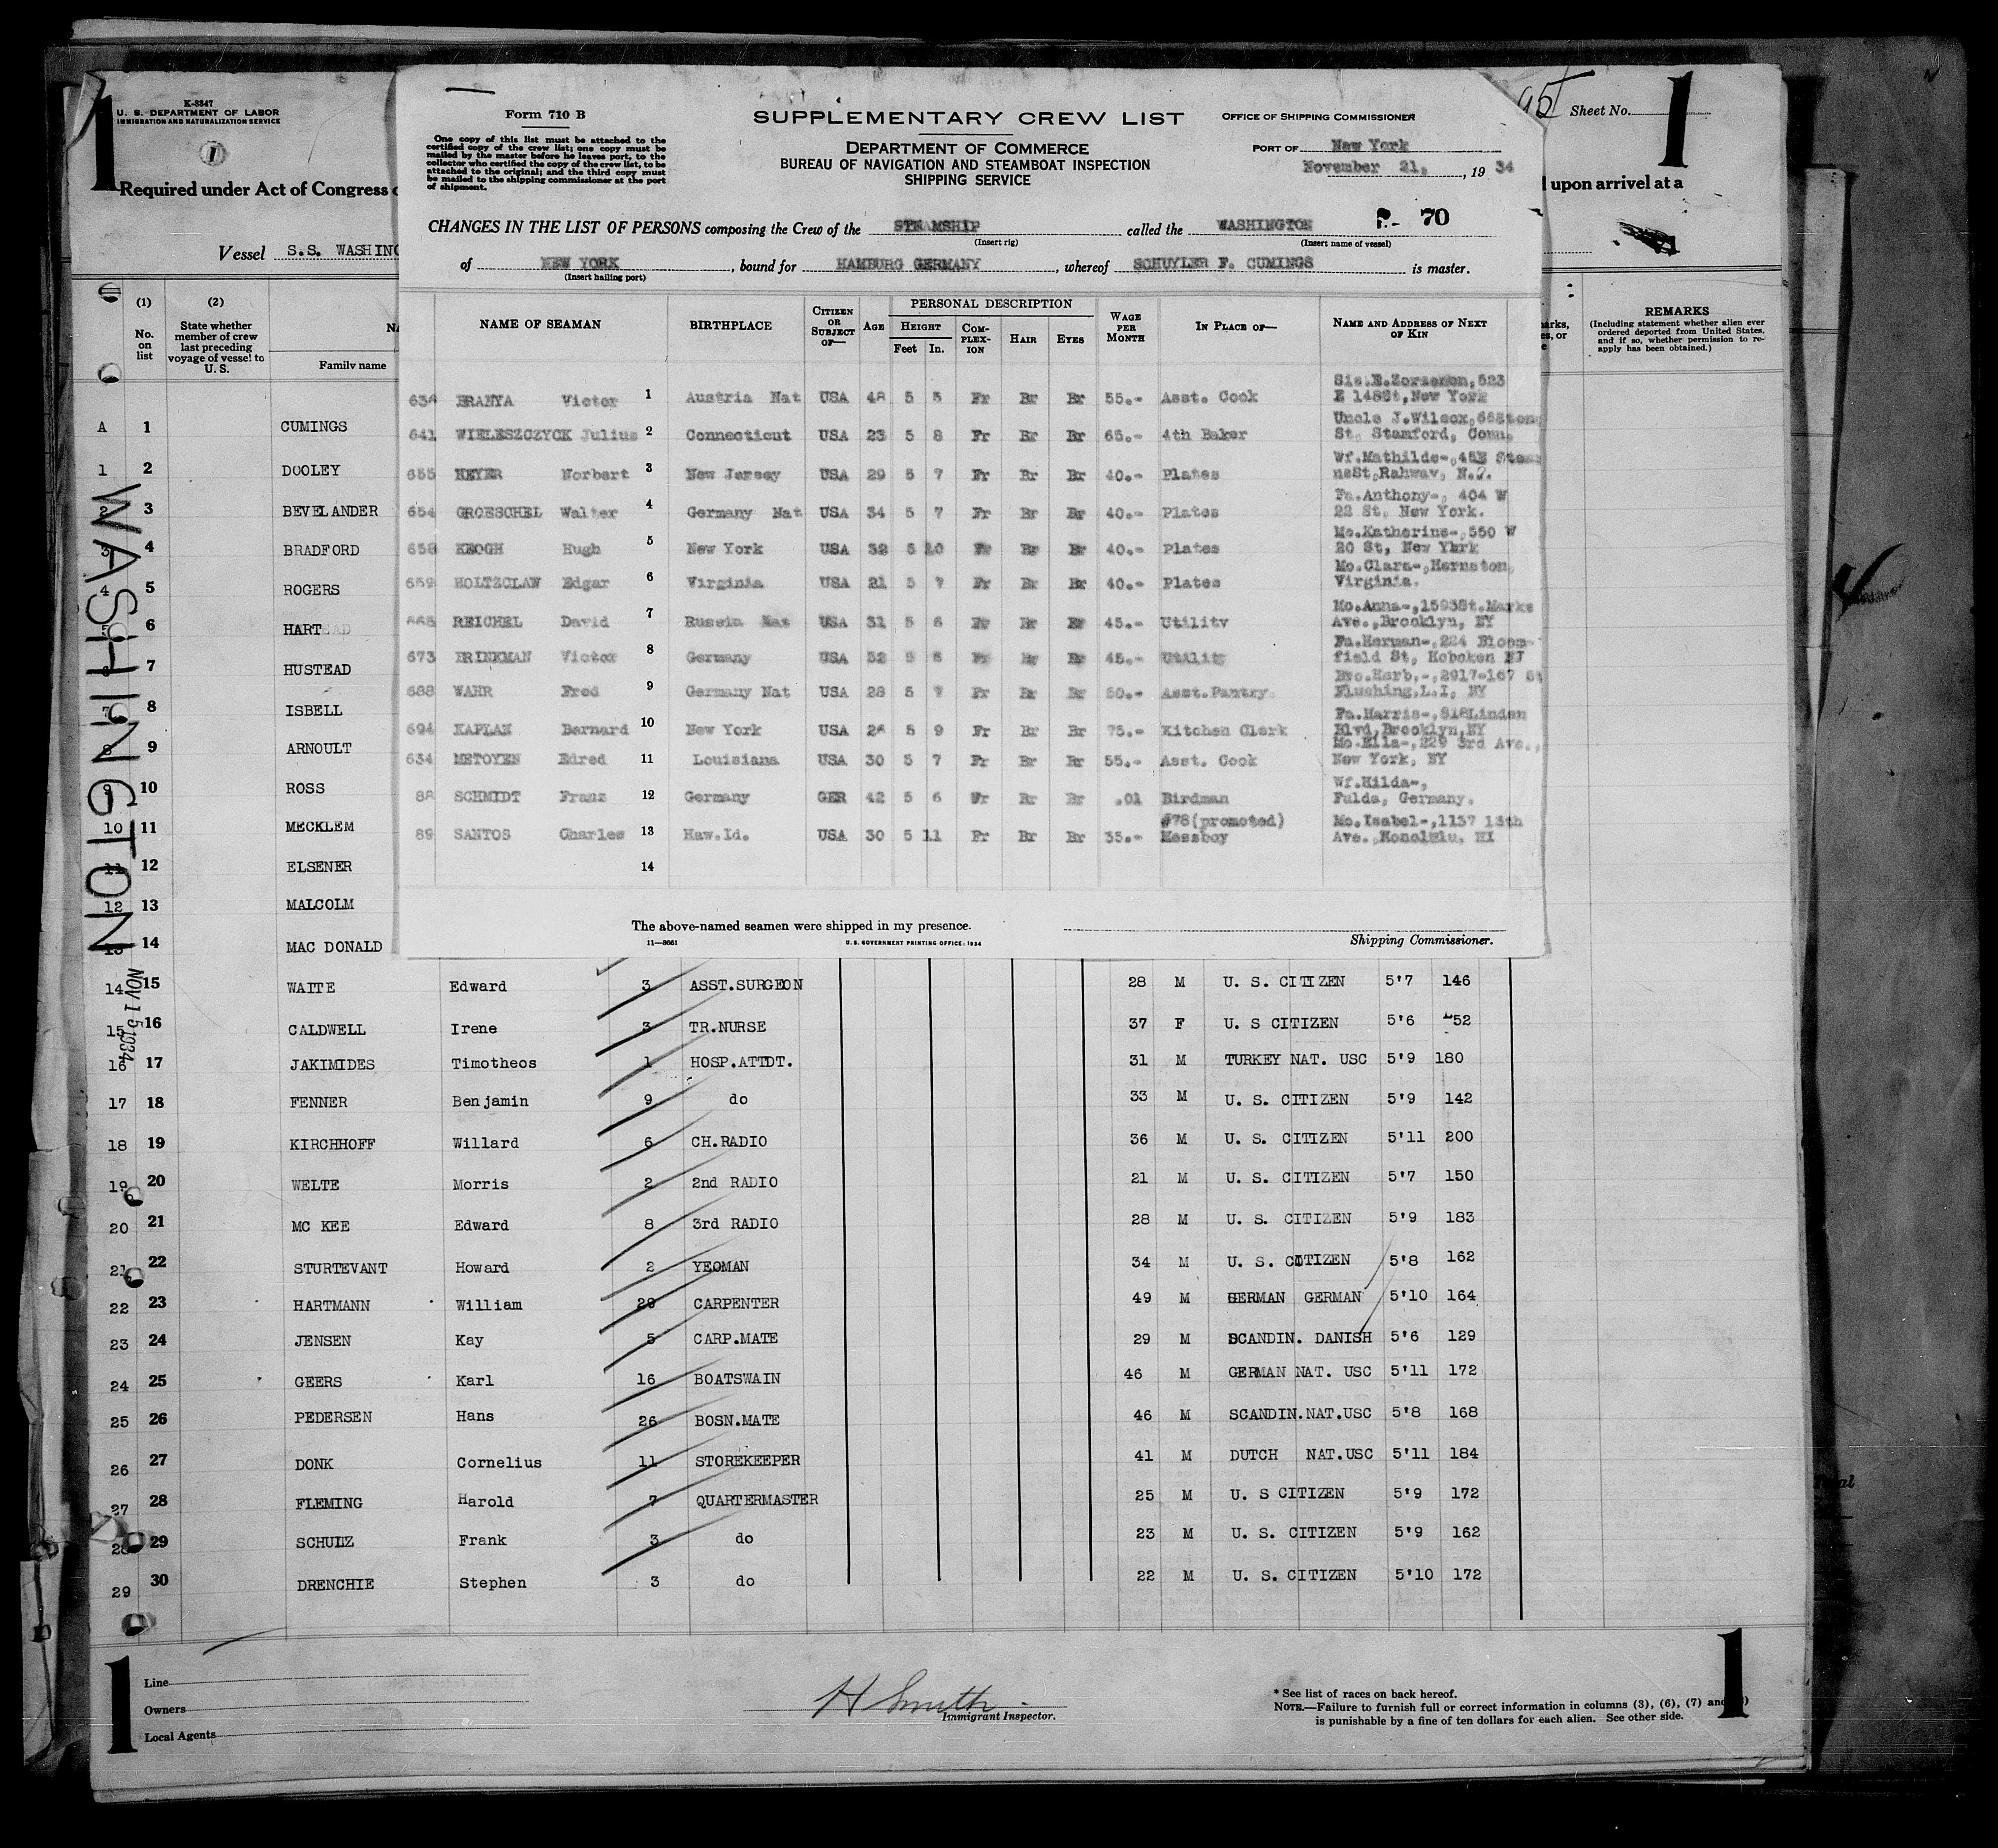 K-8347
U. S. DEPARTMENT OF LABOR
IMMIGRATION AND NATURALIZATION SERVICE
1
Required under Act of Congress
Vessel S.S. WASHING
(1) No. on list
(2) State whether member of crew last preceding voyage of vessel to U. S.
Family name
Form 710 B
One copy of this list must be attached to the
certified copy of the crew list; one copy must be
mailed by the master before he leaves port, to the
collector who certified the copy of the crew list, to be
attached to the original; and the third copy must
be mailed to the shipping commissioner at the port
of shipment.
SUPPLEMENTARY CREW LIST
DEPARTMENT OF COMMERCE
BUREAU OF NAVIGATION AND STEAMBOAT INSPECTION
SHIPPING SERVICE
OFFICE OF SHIPPING COMMISSIONER
PORT OF New York
November 21, , 19 34
95
Sheet No.
1
upon arrival at a
CHANGES IN THE LIST OF PERSONS composing the Crew of the STEAMSHIP called the WASHINGTON 70
(Insert rig) (Insert name of vessel)
of NEW YORK , bound for HAMBURG GERMANY , whereof SCHUYLER F. CUMINGS is master.
(Insert hailing port)
NAME OF SEAMAN BIRTHPLACE CITIZEN OR SUBJECT OF— AGE PERSONAL DESCRIPTION HEIGHT Feet In. COM-PLEX-ION HAIR EYES WAGE PER MONTH IN PLACE OF— NAME AND ADDRESS OF NEXT OF KIN
REMARKS
(Including statement whether alien ever
ordered deported from United States,
and if so, whether permission to re-
apply has been obtained.)
Victor 1 Austria Nat USA 48 5 5 Fr Br Br 55.- Asst. Cook 523
E 148St, New York
641 WIELESZCZYCK Julius 2 Connecticut USA 23 5 8 Fr Br Br 65.- 4th Baker Uncle J.Wilcox,
St. Stamford, Conn.
655 HEYER Norbert 3 New Jersey USA 29 5 7 Fr Br Br 40.- Plates Wf.Mathilde-,
Rahway, N.J.
654 GROESCHEL Walter 4 Germany Nat USA 34 5 7 Fr Br Br 40.- Plates Fa.Anthony-, 404 W
22 St, New York.
658 KEOGH Hugh 5 New York USA 32 5 10 Fr Br Br 40.- Plates Mo.Katherine-,550 W
20 St, New York
659 HOLTZCLAW Edgar 6 Virginia USA 21 5 7 Fr Br Br 40.- Plates Mo.Clara-,
Virginia.
REICHEL David 7 Russia Nat USA 31 5 6 Fr Br Br 45.- Utility Mo.Anna-,1593St.Marks
Ave.,Brooklyn, NY
673 BRINKMAN Victor 8 Germany USA 32 5 8 Fr Br Br 45.- Utility Fa.Herman-,224 Bloom-
field St, Hoboken NJ
688 WAHR Fred 9 Germany Nat USA 28 5 7 Fr Br Br 60.- Asst.Pantry. Bro.Herb,-,2917-167 St
Flushing,L.I, NY
694 KAPLAN Bernard 10 New York USA 26 5 9 Fr Br Br 75.- Kitchen Clerk Fa.Harris-,818Linden
Blvd,Brooklyn,NY
634 METOYEN Edred 11 Louisiana USA 30 5 7 Fr Br Br 55.- Asst. Cook Mo.Ella-,229 3rd Ave.,
New York, NY
88 SCHMIDT Franz 12 Germany GER 42 5 6 Fr Br Br .01 Birdman Wf.Hilda-,
Fulda, Germany.
89 SANTOS Charles 13 Haw.Id. USA 30 5 11 Fr Br Br 35.- #78(promoted) Messboy Mo.Isabel-,1137 13th
Ave.,Honolulu, HI
14
The above-named seamen were shipped in my presence.
11—8661 U. S. GOVERNMENT PRINTING OFFICE: 1934 Shipping Commissioner.
A 1 CUMINGS
1 2 DOOLEY
2 3 BEVELANDER
3 4 BRADFORD
4 5 ROGERS
5 6 HART
7 HUSTEAD
7 8 ISBELL
8 9 ARNOULT
9 10 ROSS
10 11 MECKLEM
11 12 ELSENER
12 13 MALCOLM
13 14 MAC DONALD
WASHINGTON
NOV 15 1934
14 15 WAITE Edward 3 ASST.SURGEON 28 M U. S. CITIZEN 5'7 146
15 16 CALDWELL Irene 3 TR.NURSE 37 F U. S CITIZEN 5'6 152
16 17 JAKIMIDES Timotheos 1 HOSP.ATTDT. 31 M TURKEY NAT. USC 5'9 180
17 18 FENNER Benjamin 9 do 33 M U. S. CITIZEN 5'9 142
18 19 KIRCHHOFF Willard 6 CH.RADIO 36 M U. S. CITIZEN 5'11 200
19 20 WELTE Morris 2 2nd RADIO 21 M U. S. CITIZEN 5'7 150
20 21 MC KEE Edward 8 3rd RADIO 28 M U. S. CITIZEN 5'9 183
21 22 STURTEVANT Howard 2 YEOMAN 34 M U. S. CITIZEN 5'8 162
22 23 HARTMANN William 20 CARPENTER 49 M GERMAN GERMAN 5'10 164
23 24 JENSEN Kay 5 CARP.MATE 29 M SCANDIN. DANISH 5'6 129
24 25 GEERS Karl 16 BOATSWAIN 46 M GERMAN NAT. USC 5'11 172
25 26 PEDERSEN Hans 26 BOSN.MATE 46 M SCANDIN.NAT.USC 5'8 168
26 27 DONK Cornelius 11 STOREKEEPER 41 M DUTCH NAT.USC 5'11 184
27 28 FLEMING Harold 7 QUARTERMASTER 25 M U. S CITIZEN 5'9 172
28 29 SCHULZ Frank 3 do 23 M U. S. CITIZEN 5'9 162
29 30 DRENCHIE Stephen 3 do 22 M U. S. CITIZEN 5'10 172
1
Line
Owners
Local Agents
H Smith
Immigrant Inspector.
* See list of races on back hereof.
NOTE.—Failure to furnish full or correct information in columns (3), (6), (7) and
is punishable by a fine of ten dollars for each alien. See other side.
1